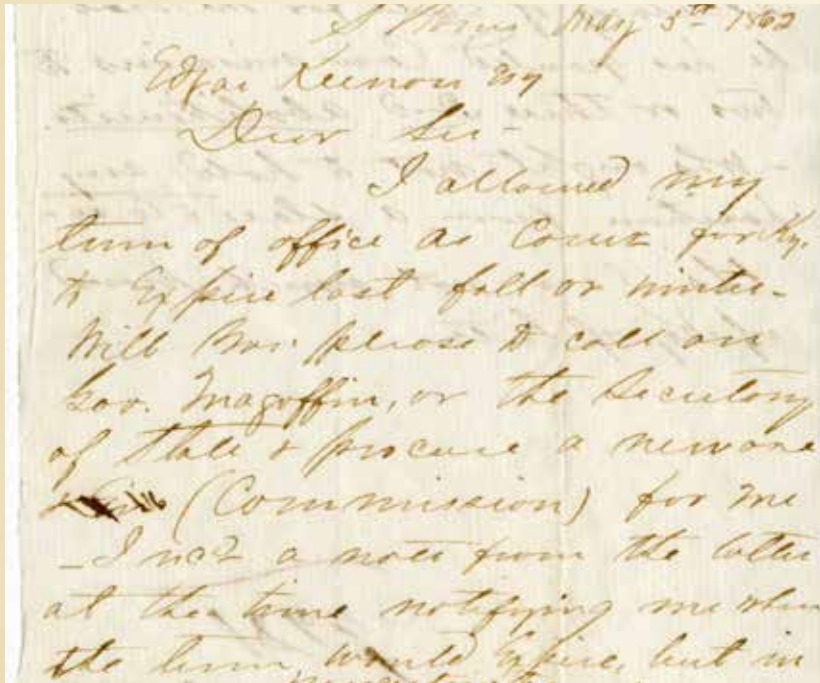 St Louis May 5th 1862
Edgar Keenon Esq
Dear Sir -
I allowed my
term of office as Comr for Ky.
to Expire last fall or winter -
Will You please to call on
Gov. Magoffin, or the Secretary
of State & procure a new one
(Commission) for me
- I recd a note from the latter
at the time notifying me when
the term would Expire, but in